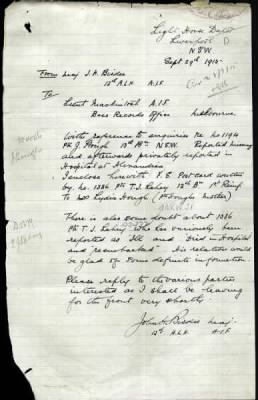 Light Horse Depot
Liverpool
N.S.W.
Sept 29th 1915
From Maj. J. H.
12th A.L.H. A.I.F.
To
Lieut Macintosh A.I.F.
Base Records Office Melbourne.
With reference to enquiries re No 1194
Pte J. Gough 18th Bn N.S.W. Reported missing
and afterwards privately reported in
Hospital at Alexandria
I enclose herewith F.S. Postcard written
by No 1386 Pte T.J. Lahey 13th Bn 1st Reinf
to Mrs Lydia Gough (Pte Gough's mother)
There is also some doubt about 1386
Pte T.J. Lahey who has variously been
reported as Ill and Died in Hospital
and reembarked. His relations would
be glad of some definite information.
Please reply to the various parties
interested as I shall be leaving
for the front very shortly
John H. Maj.
12th A.L.H. A.I.F.